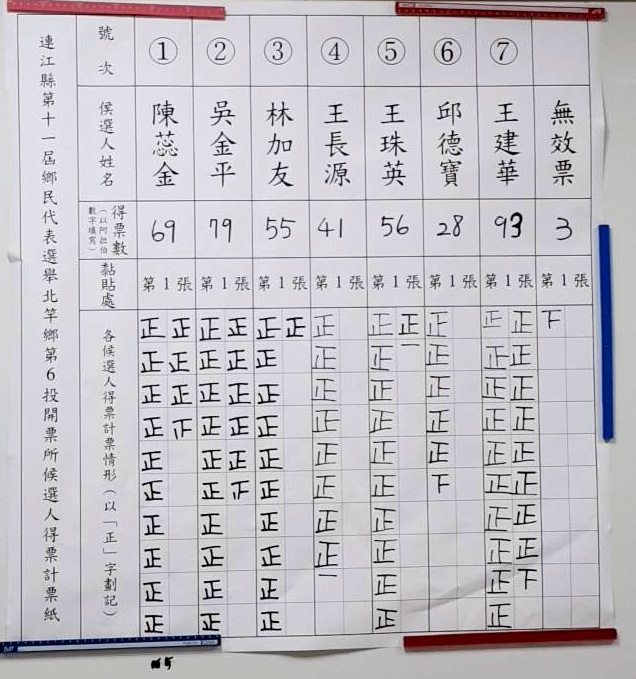 連江縣第十一屆鄉民代表選舉北竿鄉第6投開票所候選人得票計票紙
號次 ① ② ③ ④ ⑤ ⑥ ⑦
侯選人姓名 陳蕊金 吳金平 林加友 王長源 王珠英 邱德寶 王建華 無效票
得票數(以阿拉伯數字填寫) 69 79 55 41 56 28 93 3
黏貼處 第1張 第1張 第1張 第1張 第1張 第1張 第1張 第1張
各候選人得票計票情形(以「正」字劃記)
正正 正正 正正 正 正正 正 正正 下
正正 正正 正 正 正一 正 正正
正正 正正 正 正 正 正 正正
正 正正 正 正 正 正 正正
正 正正 正 正 正 正 正正
正 正 正 正 正 下 正正
正 正 正 正 正 正正
正 正 正 正 正 正正
正 正 正 一 正 正下
正 正 正 正 正